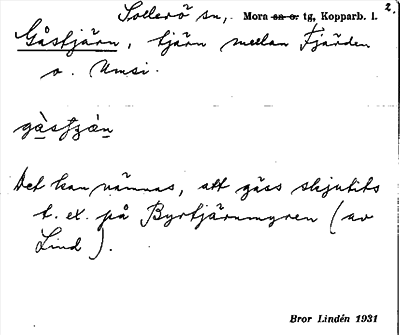 2.
Sollerö sn, Mora sa o. tg, Kopparb. l.
Gåstjärn, tjärn mellan Fjärden
o. Umsi.
gàsțʒæ̀n
Det kan nämnas, att gäss skjutits
t. ex. på Byrtjärnmyren (av
Lind).
Bror Lindén 1931